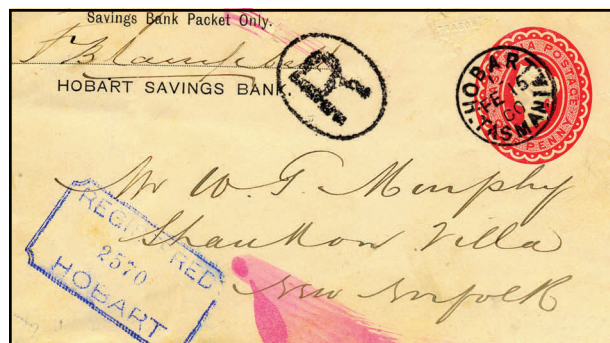 Savings Bank Packet Only.
HOBART SAVINGS BANK.
R
HOBART
FE 15
00
TASMANIA
A POSTAGE
PENNY
Mr W. G. Murphy
Villa
New Norfolk
REGISTERED
2570
HOBART